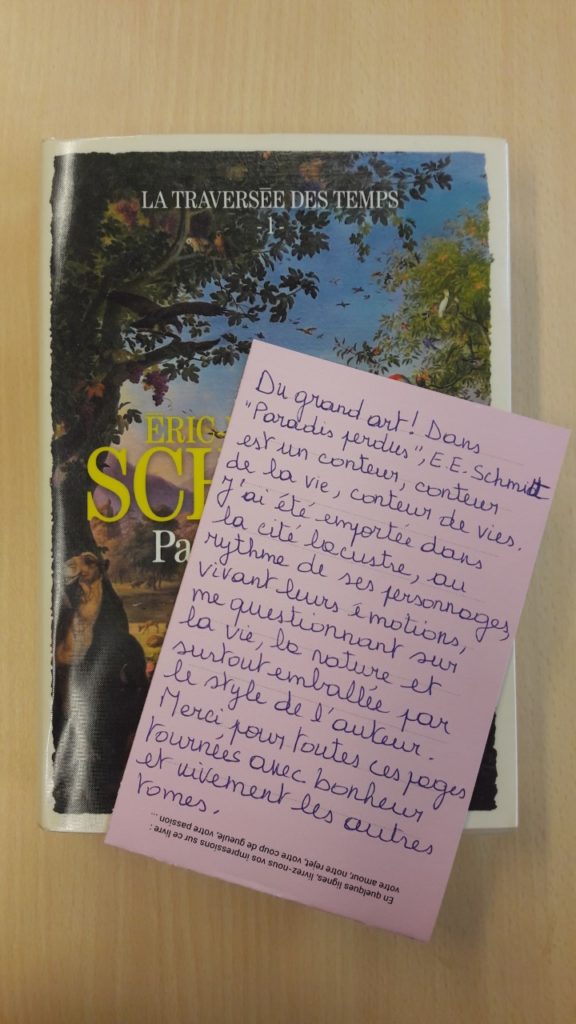 LA TRAVERSÉE DES TEMPS
- 1 -
ÉRIC
SCH
Pa
Du grand art! Dans
"Paradis perdus", E.E. Schmitt
est un conteur, conteur
de la vie, conteur de vies.
J'ai été emportée dans
la cité lacustre, au
rythme de ses personnages,
vivant leurs émotions,
me questionnant sur
la vie, la nature et
surtout emballée par
le style de l'auteur.
Merci pour toutes ces pages
tournées avec bonheur
et vivement les autres
tomes.
En quelques lignes, livrez-nous vos impressions sur ce livre :
votre amour, notre rejet, votre coup de gueule, votre passion ...